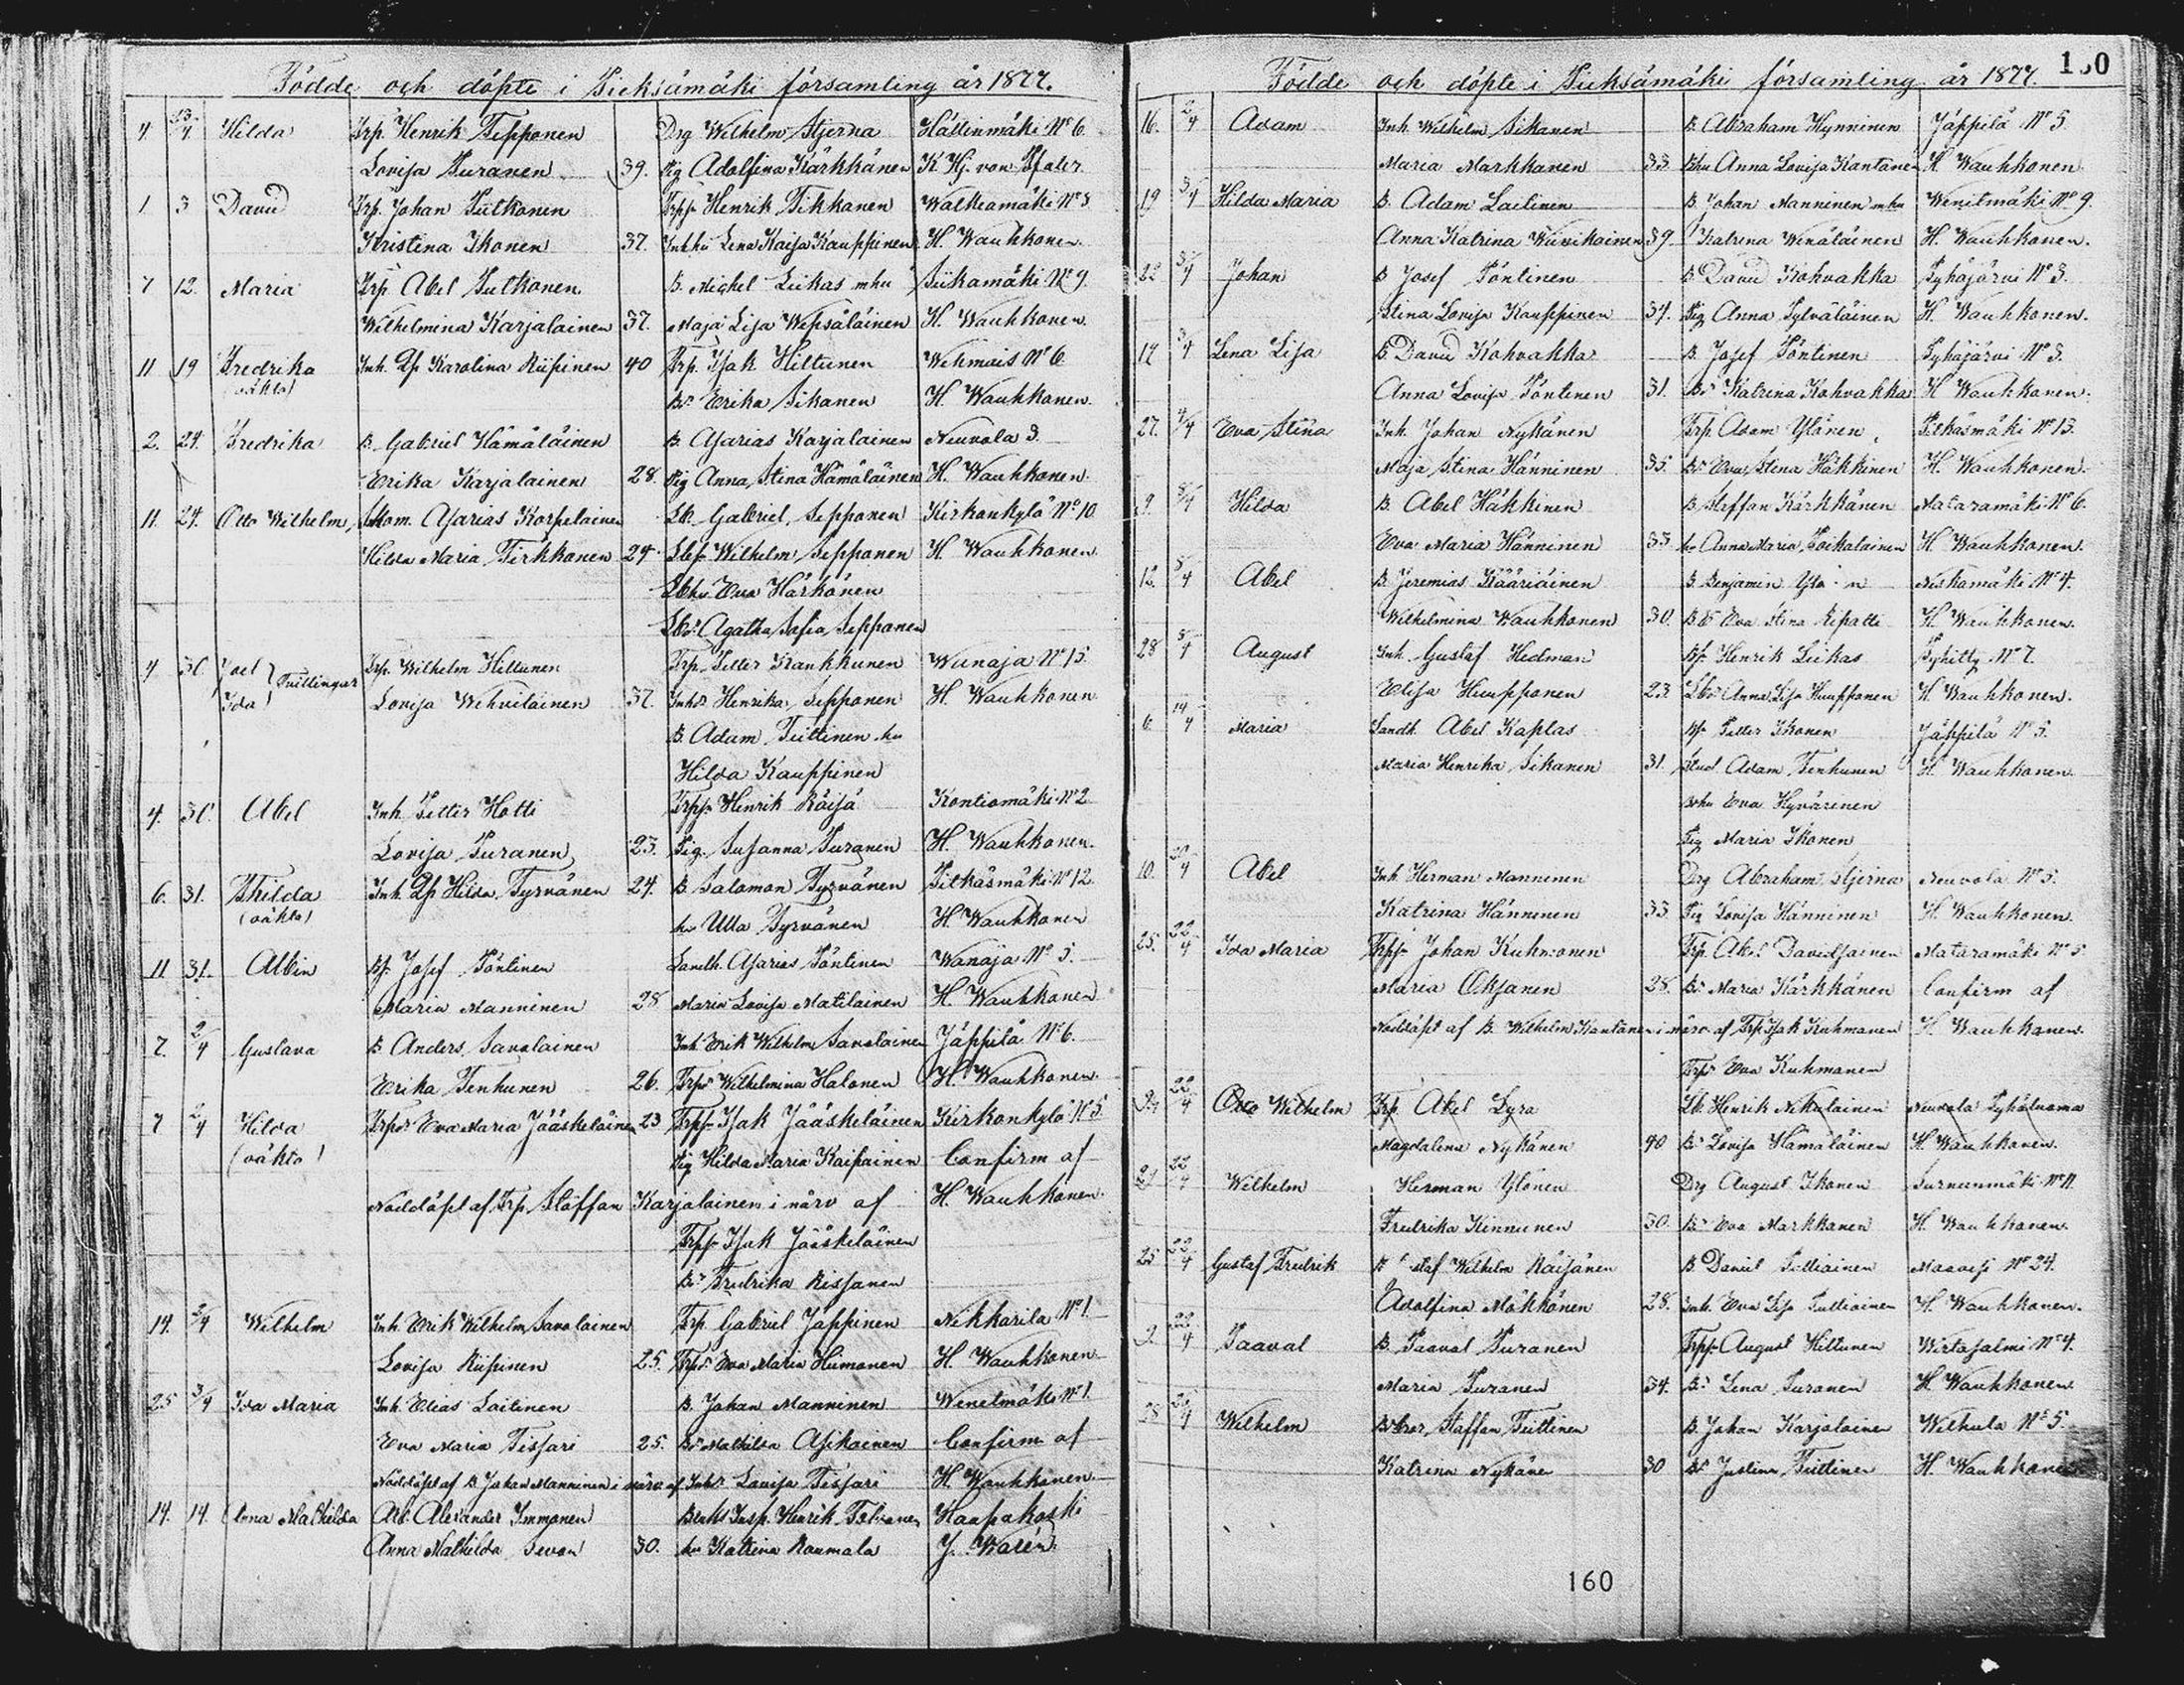 Födde och döpte i Pieksämäki församling år 1877.
4 Hilda Trp. Henrik Tepponen Drg Wilhelm Stjerna Hällinmäki No 6.
Lovisa Turanen 39. Pig Adolfina Kärkkänen K Hj. von Pfaler
1 3 David Trp. Johan Piitkonen Trpp Henrik Tikkanen Walkiamäki No 3
Kristina Ikonen 37. Inhhu Lena Kaisa Kauppinen H. Wauhkonen.
7 12. Maria Trp Abel Putkonen B. Michel Liikas mhu Siikamäki No 9
Wilhelmina Karjalainen 37. Maja Lisa Wepsäläinen H. Wauhkonen.
11 19 Fredrika Inh. Dr Karolina Riipinen 40 Trp. Isak Hiltunen Wehmais No 6
(oäkta) Bdr Erika Sikanen H. Wauhkonen.
2. 24. Fredrika B. Gabriel Hämäläinen B. Asarias Karjalainen Neuvola 3.
Erika Karjalainen 28. Pig Anna Stina Hämäläinen H. Wauhkonen.
11. 24. Otto Wilhelm Skom. Asarias Korpelainen Lb. Gabriel Sepponen Kirkonkylä No 10
Hilda Maria Pirkkonen 24. Lbsr Wilhelm Sepponen H. Wauhkonen
Lbhu Eva Härkönen
Lbdr Agatha Sofia Seppanen
4 30 Joel } Tvillingar Trp. Wilhelm Hiltunen Trp. Petter Kankkunen Wunaja No 15
Ida Lovisa Wehviläinen 37. Inhdr Henrika Sepponen H. Wauhkonen
B. Adam Tiittinen hu
Hilda Kauppinen
4. 30. Abel Inh. Petter Hotti Trpp Henrik Räisä Kontiomäki No 2
Lovisa Turanen 23. Pig. Susanna Turanen H. Wauhkonen.
6. 31. Thilda Inh. Dr Hilda Tyrvänen 24. B. Salomon Tyrvänen Pitkäsmäki No 12
(oäkta) hu Ulla Tyrvänen H. Wauhkonen
11 31. Albin Bsr Josef Pöntinen Landh. Asarias Pöntinen Wanaja No 5.
Maria Manninen 28 Maria Lovisa Matilainen H. Wauhkonen
7. 2/4 Gustava B Anders Savolainen Inh. Erik Wilhelm Savolainen Jäppilä No 6.
Erika Tenhunen 26. Trpdr Wilhelmina Halonen H. Wauhkonen
7 2/4 Hilda Trpdr Eva Maria Jääskeläinen 23 Trpsr Isak Jääskeläinen Kirkonkylä No 5
(oäkta) Pig Hilda Maria Kaipainen Confirm af
Nöddöpt af Trp. Staffan Karjalainen i närv af H. Wauhkonen.
Trpsr Isak Jääskeläinen
Bdr Fredrika Rissanen
14. 2/4 Wilhelm Inh. Erik Wilhelm Savolainen Trp. Gabriel Jäppinen Nikkarila No 1.
Lovisa Riipinen 25. Trpdr Eva Maria Heimonen H. Wauhkonen
25 3/4 Ida Maria Inh. Elias Laitinen B. Johan Manninen Wenetmäki No 1.
Eva Maria Tissari 25. Bdr Mathilda Asikainen Confirm af
Nöddöpt af B Johan Manninen i närv. af Inhdr Lovisa Tissari H. Wauhkonen.
14. 14. Anna Mathilda Arb. Alexander Immonen Bruks Insp. Henrik Tolvanen Haapakoski
Anna Mathilda 30. hu Katrina Raumala J. Warén
Födde och döpte i Pieksämäki församling år 1877. 160
16. 2/4 Adam Inh. Wilhelm Sikanen B. Abraham Hynninen Jäppilä No 5
Maria Markkanen 33 Bhu Anna Lovisa Kantanen H Wauhkonen
19 3/4 Hilda Maria B. Adam Laitinen B. Johan Manninen mhu Wenetmäki No 9.
Anna Katrina Wiivikainen 39 Katrina Wenäläinen H. Wauhkonen.
22 3/4 Johan B Josef Pöntinen B David Kohvakka Pyhäjärvi No 3.
Stina Lovisa Kauppinen 34. Pig Anna Sylväläinen H. Wauhkonen.
17 3/4 Lena Lisa B. David Kohvakka B. Josef Pöntinen Pyhäjärvi No 3.
Anna Lovisa Pöntinen 31. Bdr Katrina Kohvakka H Wauhkonen.
27. 4/4 Eva Stina Inh. Johan Nykänen Trp. Adam Ylönen Pitkäsmäki No 13.
Maja Stina Hänninen 35. Bdr Eva Stina Häkkinen H. Wauhkonen.
9. 8/4 Hilda B. Abel Häkkinen B. Staffan Kärkkänen Mataramäki No 6.
Eva Maria Hänninen 33 hu Anna Maria Poikalainen H Wauhkonen.
12. 8/4 Abel B. Jeremias Kääriäinen B Benjamin Niskamäki No 4.
Wilhelmina Wauhkonen 30. Bdr Eva Stina Repatti H. Wauhkonen.
28 8/4 August Inh. Gustaf Hedman Bsr Henrik Liikas Pyhitty No 7.
Elisa Huupponen 23 Lbdr Anna Lisa Huupponen H Wauhkonen.
6. 14/4 Maria Landh. Abel Kaplas Bsr Petter Ikonen Jäppilä No 5.
Maria Henrika Sikanen 31. Stud Adam Tenhunen H. Wauhkonen
Bhu Eva Hyvärinen
Pig Maria Ikonen
10. Abel Inh. Herman Manninen Drg Abraham Stjerna Neuvola No 5.
Katrina Hänninen 33 Pig Lovisa Hänninen H Wauhkonen.
25. 22/4 Ida Maria Trpsr Johan Kuhmonen Trp. Abel Davidsainen Mataramäki No 5
Maria Oksanen 28. Bdr Maria Kärkkänen Confirm af
Nöddöpt af B. Wilhelm Kantanen i närv. af Trp Isak Kuhmanen H Wauhkonen.
Trpdr Eva Kuhmanen
22/4 Otto Wilhelm Trp. Abel Lyra Lb. Henrik Nikulainen Neuvola
Magdalena Nykänen 40 Bdr Lovisa Hämäläinen H. Wauhkonen.
22/4 Wilhelm Herman Ylönen Drg August Ikonen Surnunmäki No 11
Fredrika Kinnunen 30. Bdr Eva Markkanen H. Wauhkonen.
25 22/4 Gustaf Fredrik Wilhelm Räisänen B Daniel Pulliainen Maavesi No 24.
Adolfina Mökkönen 28. Inh. Eva Lisa Pulliainen H. Wauhkonen.
2. 22/4 Paaval B. Paaval Turanen Trpsr August Hiltunen Wirtasalmi No 4.
Maria Turanen 34. Bdr Lena Turanen H Wauhkonen
Wilhelm Staffan Tiittinen B. Johan Karjalainen Wilhula No 5.
Katrina Nykänen 30 Bdr Justina Tiittinen H. Wauhkonen
160